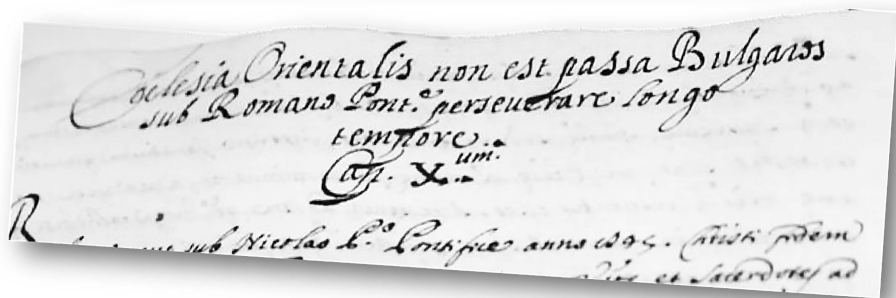 Ecclesia Orientalis non est passa Bulgaros
sub Romano Pont.e perseverare longo
tempore.
Cap. X.um.
sub Nicolao P.o Pontifice anno Christi fidem
et Sacerdotes ad